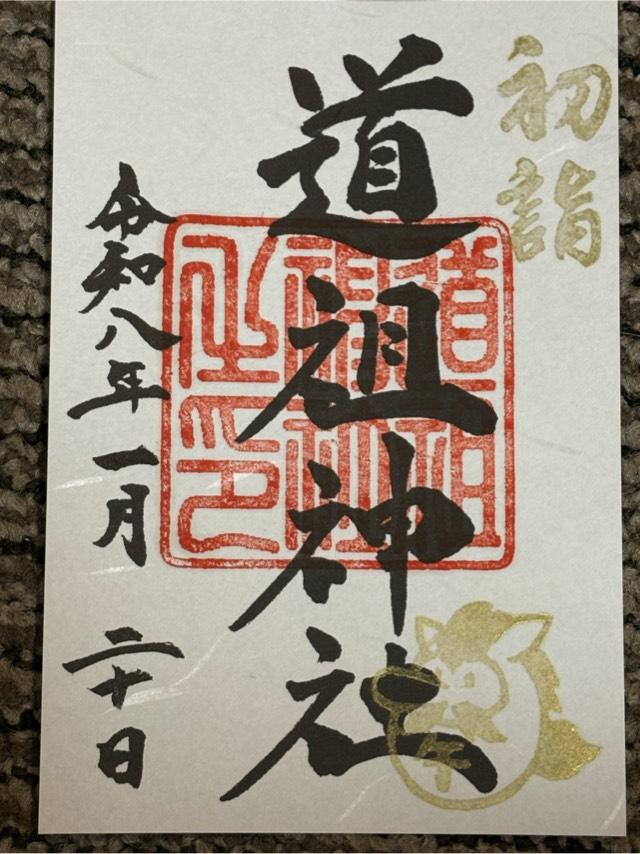 初詣
道祖神社
道祖
神社
之印
令和八年一月二十日
午